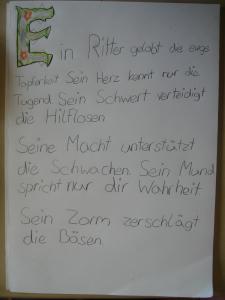 Ein Ritter gelobt die ewge
Tapferkeit Sein Herz kennt nur die
Tugend. Sein Schwert verteidigt
die Hilflosen
Seine Macht unterstützt
die Schwachen. Sein Mund
spricht nur dir Wahrheit.
Sein Zorm zerschlägt
die Bösen.